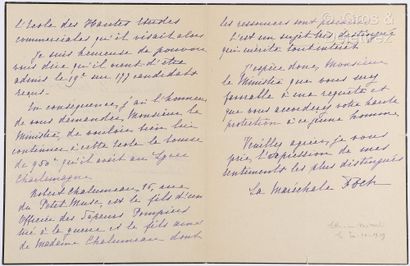 l'Ecole des Hautes Etudes
commerciales qu'il visait alors
Je suis heureuse de pouvoir
vous dire qu'il vient d'être
admis le 19e sur 173 candidats
reçus.
En conséquence, j'ai l'honneur
de vous demander, Monsieur le
Ministre, de vouloir bien lui
continuer à cette école la bourse
de 950f qu'il avait au lycée
Charlemagne
Robert Chalumeau, 25, rue
du Petit Musc, est le fils d'un
Officier des Sapeurs Pompiers
tué à la guerre et le fils aîné
de Madame Chalumeau dont
les ressources sont
C'est un sujet très distingué
qui mérite tout intérêt.
J'espère donc, Monsieur
le Ministre que vous serez
favorable à ma requête et
que vous accorderez votre haute
protection à ce jeune homme.
Veuillez agréer, je vous
prie, l'expression de mes
sentiments les plus distingués
La Maréchale Foch